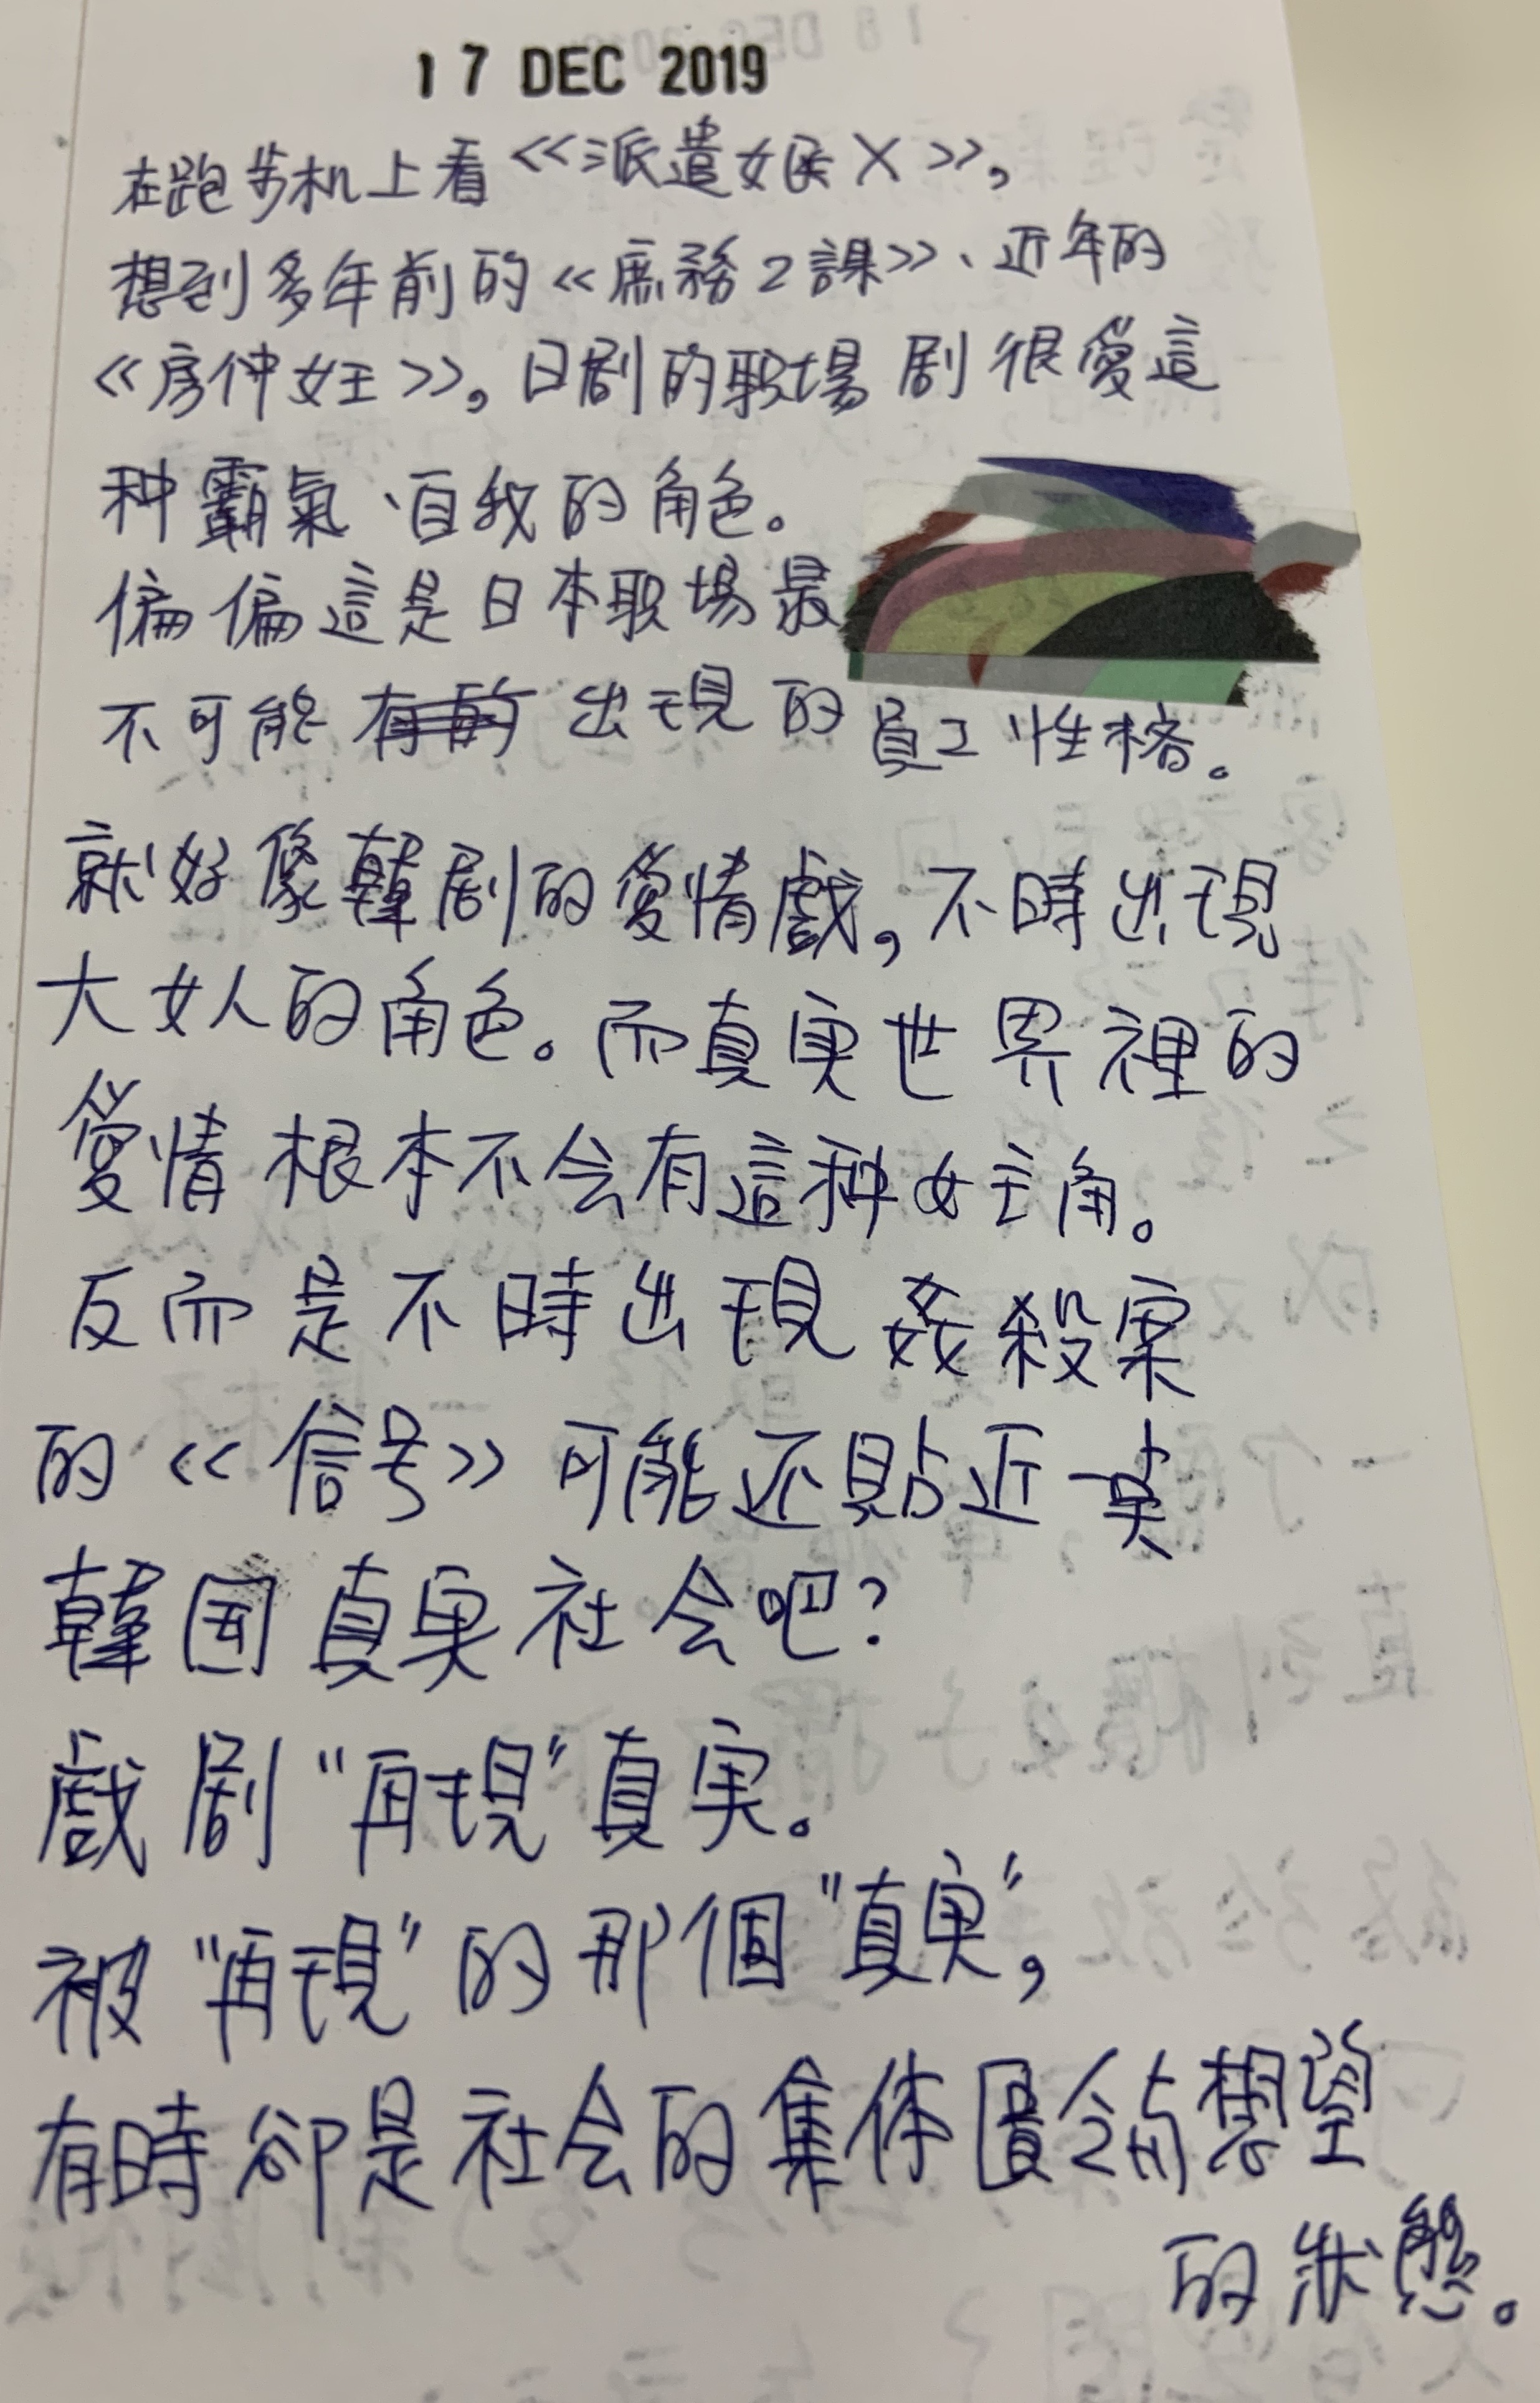 17 DEC 2019
在跑步机上看《派遣女医X》,
想到多年前的《庶務2課》、近年的
《房仲女王》。日剧的职場剧很愛這
种霸氣、自我的角色。
偏偏這是日本职場最
不可能出現的員工性格。
就好像韓剧的愛情戲,不時出現
大女人的角色。而真実世界裡的
愛情根本不会有這种女主角。
反而是不時出現姦殺案
的《信号》可能还貼近
韓国真実社会吧?
戲剧“再現”真実。
被“再現”的那個“真実”,
有時卻是社会的集体匱餘想望
的狀態。